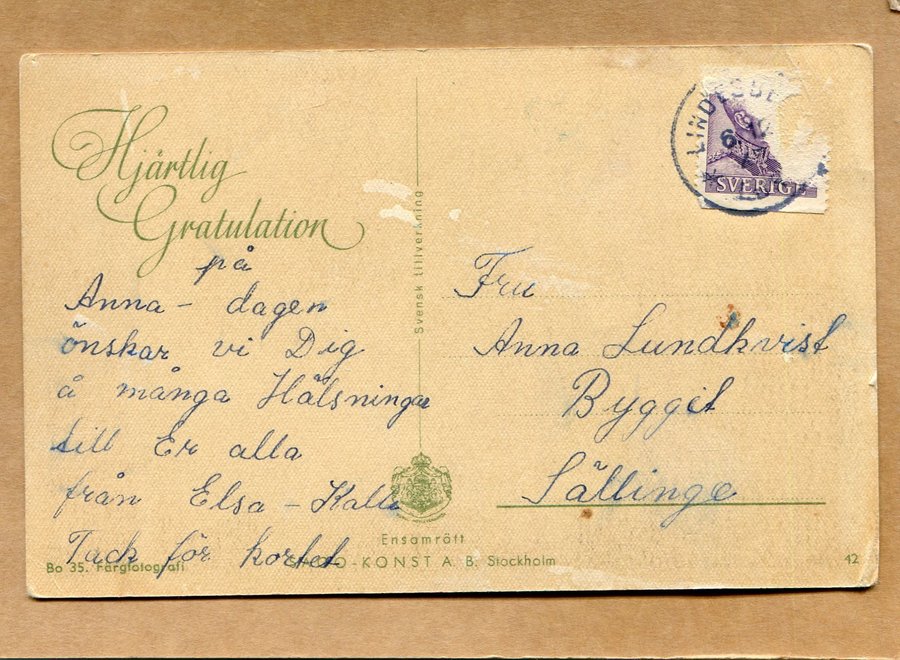 Hjärtlig
Gratulation
på
Anna - dagen
önskar vi Dig
å många Hälsningar
till Er alla
från Elsa - Kalle
Tack för kortet
Bo 35. Färgfotografi
Svensk tillverkning
SVERIGE
Fru
Anna Lundkvist
Bygget
Sällinge
Ensamrätt
-KONST A. B. Stockholm
42